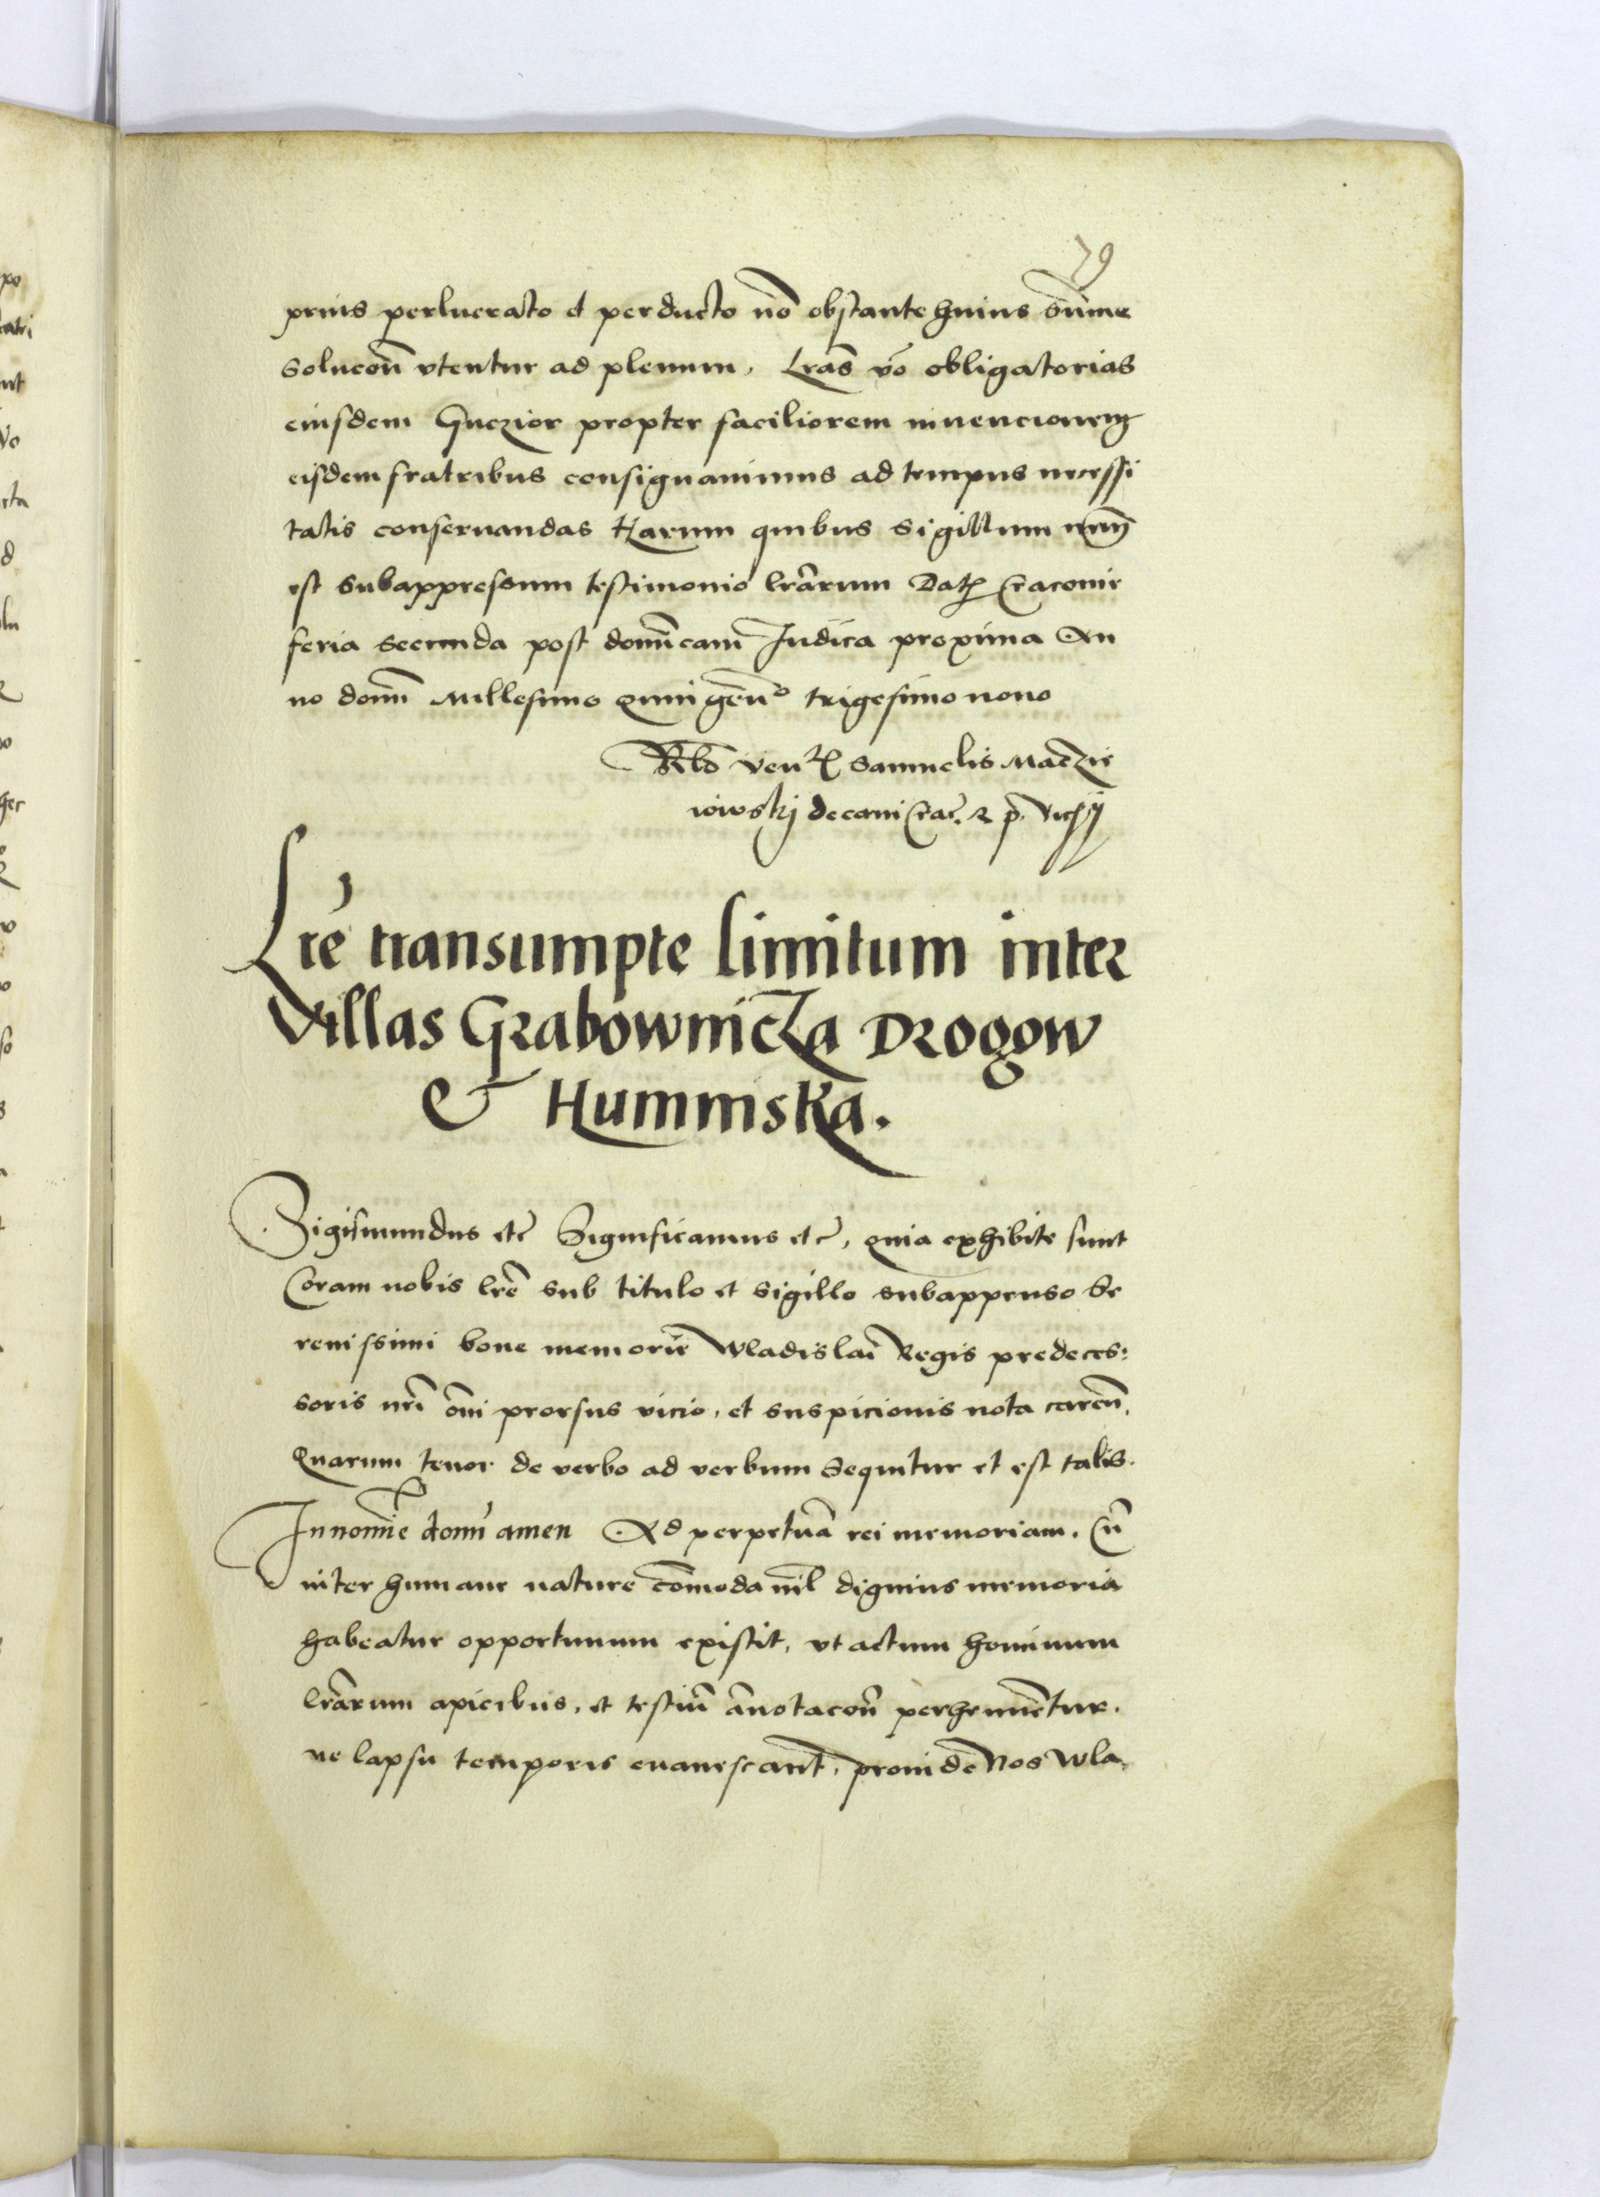 79
prius perlucrato et perducto nō obstante huius sūme
solucōn vtentur ad plenum. Lrās v̄o obligatorias
eiusdem Guczior propter faciliorem inuencionem
eisdem fratribus consignauimus ad tempus necessi
tatis conseruandas Harum quibus sigillum nrm̄
est subappressum testimonio lrārum Datꝭ Cracouie
feria secunda post domīcam Iudica proxima An
no domī Millesimo quingēnº trigesimo nono
Rlō ven Samuelis Maczie
iowskj decani Crac̄. R. p. Vice
Lrē transumpte limitum inter
villas Grabownicza Drogow
& Humniska.
Sigismundus etc̄ Significamus etc̄, quia exhibite sunt
Coram nobis lrē sub titulo et sigillo subappenso Se
renissimi bone memorie Wladislai Regis predeces:
soris nrī om̄i prorsus vicio, et suspicionis nota carēn.
Quarum tenor de verbo ad verbum sequitur et est talis.
In nomīe domī amen Ad perpetuā rei memoriam. Cū
inter humane nature cōmoda nīl dignius memoria
habeatur opportunum existit, vt actum hominum
lrārum apicibus, et testiū ānotacōn perhennētur.
ne lapsu temporis euanescant̄, prouidē Nos Wla.